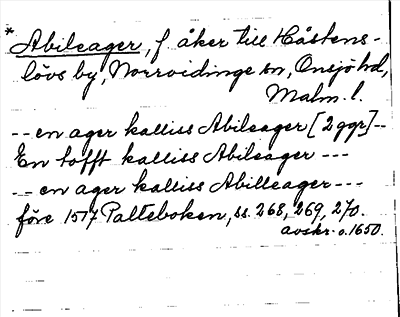 * Abileager, f. åker till Håstens-
lövs by, Norrvidinge sn, Onsjö hd,
Malm. l.
-- en ager kalliss Abileager [2 ggr] --
En tofft kalliss Abileager ---
-- en ager kalliss Abilleager ---
före 1517 Palteboken, ss. 268, 269, 270.
avskr. o. 1650.